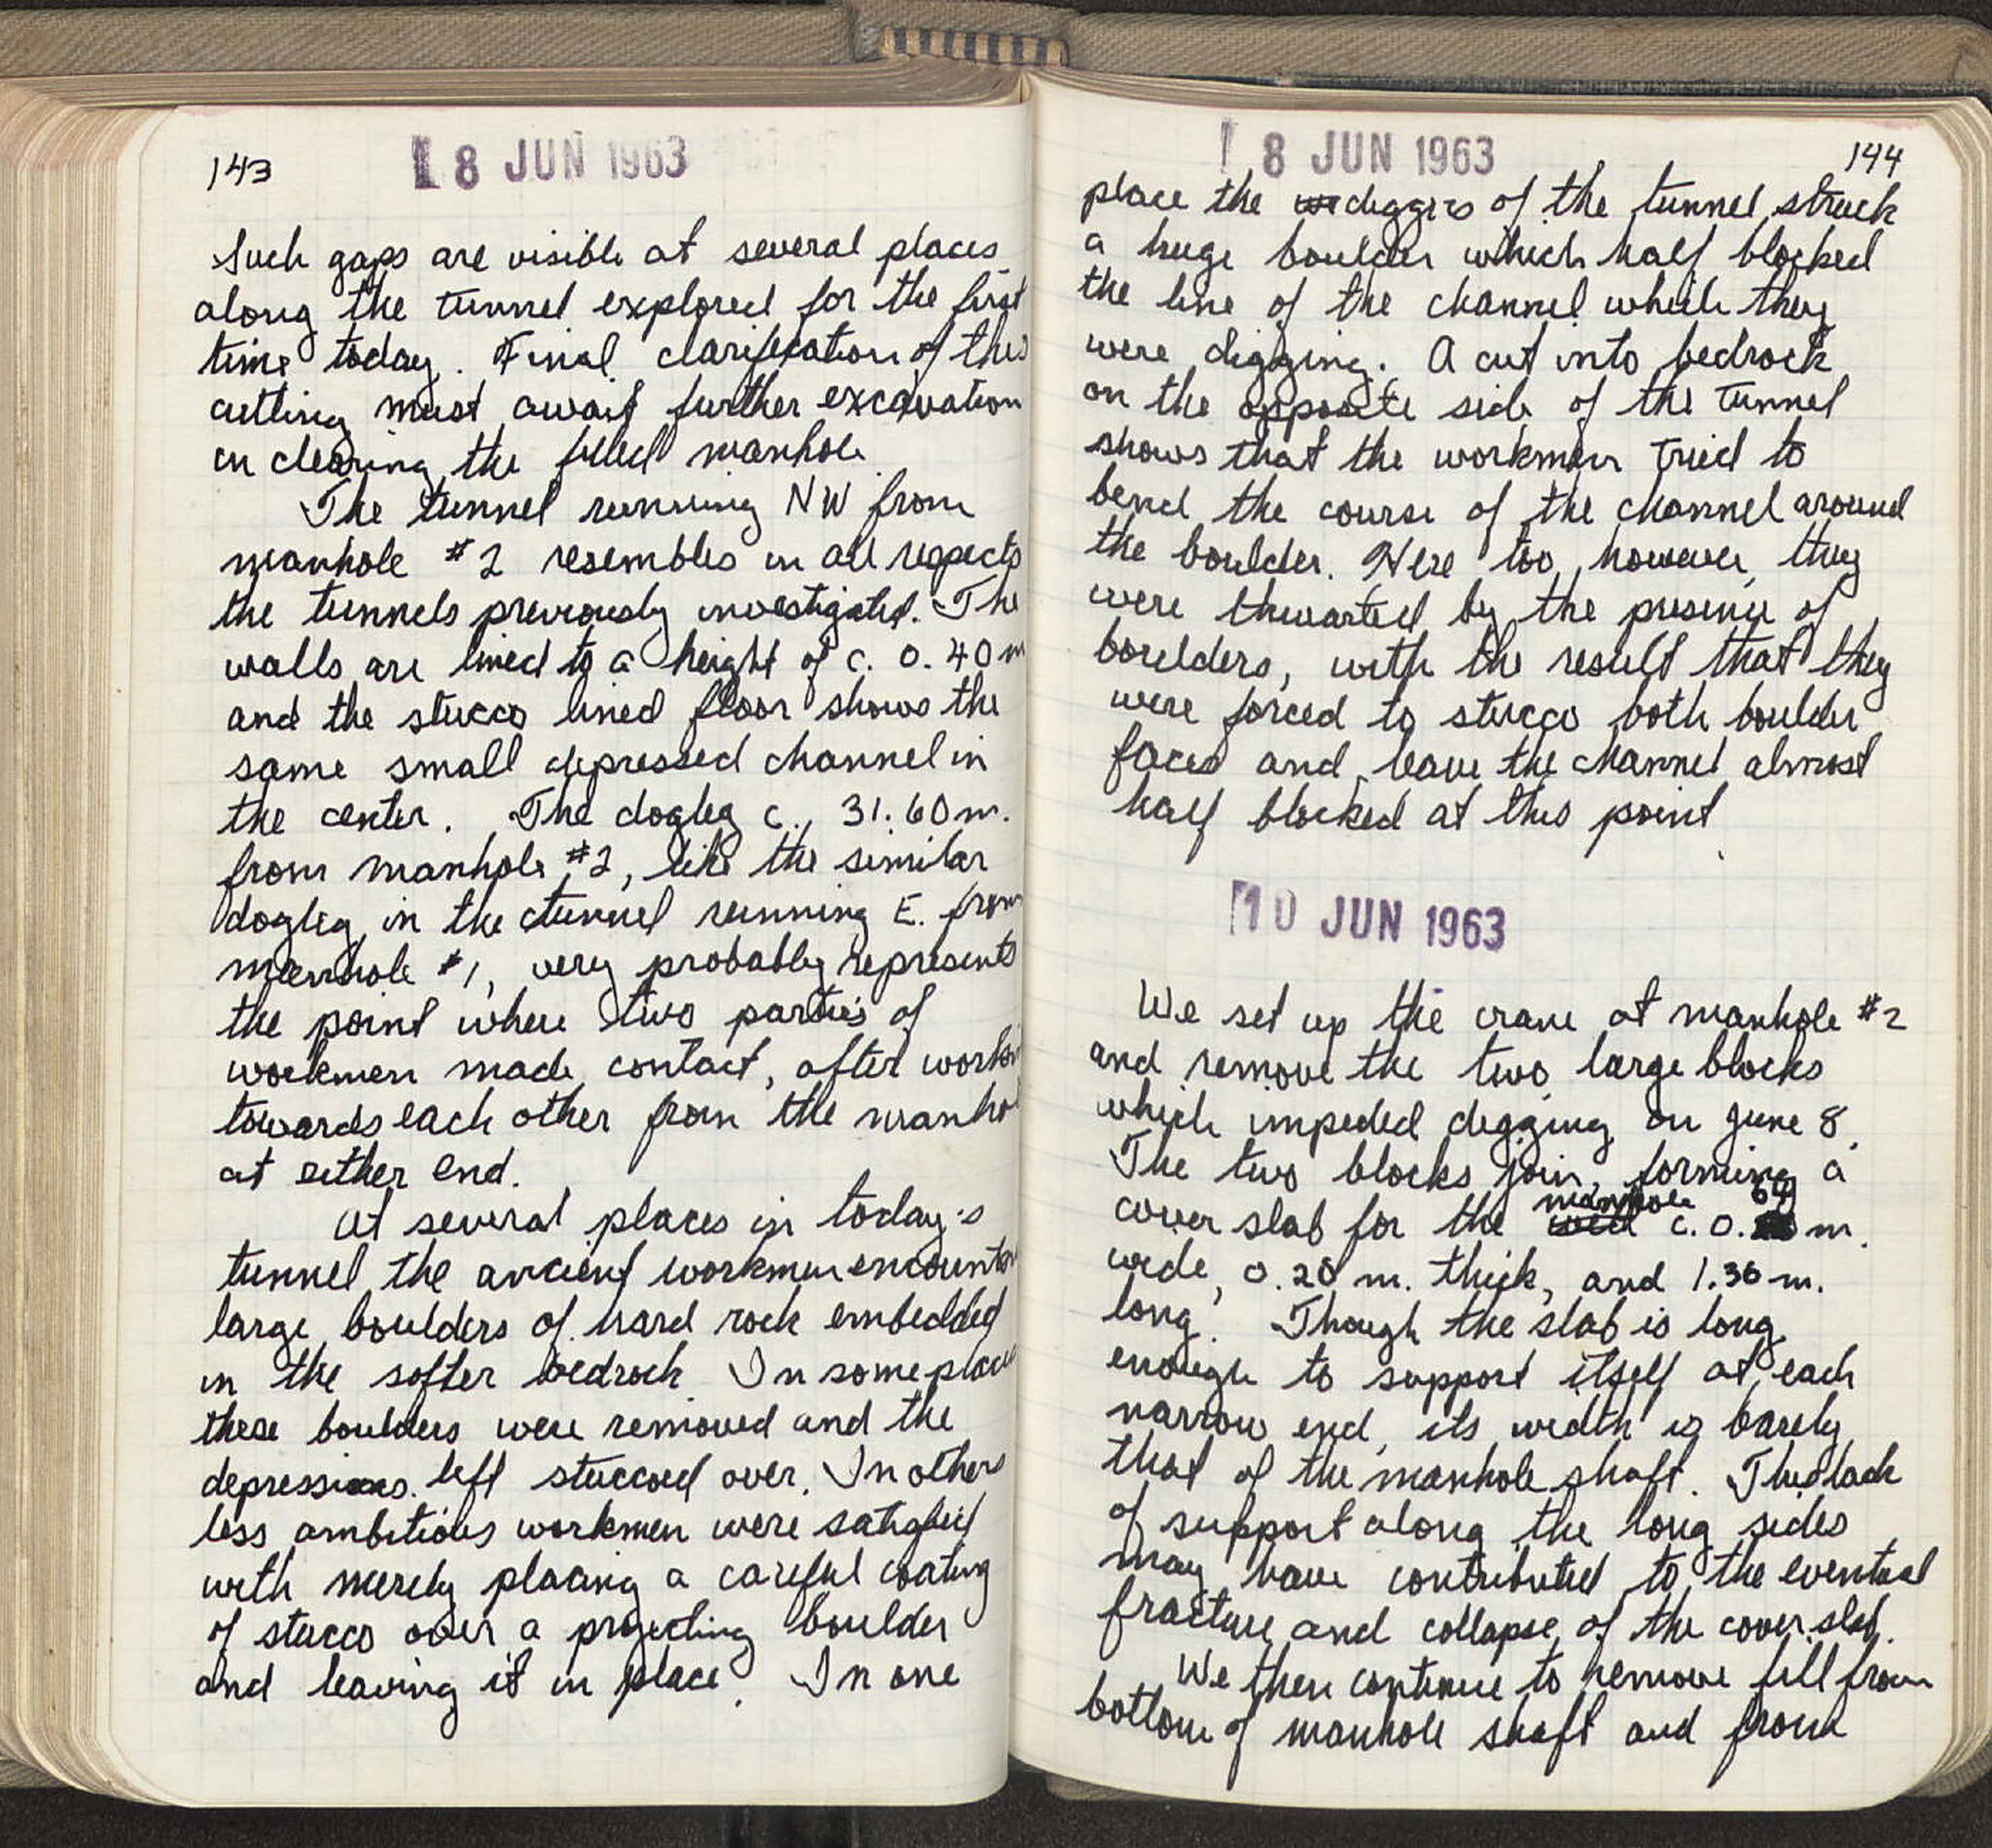 143
18 JUN 1963
Such gaps are visible at several places
along the tunnel explored for the first
time today. Final clarification of this
cutting must await further excavation
in clearing the filled manhole.
The tunnel running NW from
manhole #2 resembles in all respects
the tunnels previously investigated. The
walls are lined to a height of c. 0.40 m
and the stucco lined floor shows the
same small depressed channel in
the center. The dogleg c. 31.60 m.
from manhole #2, like the similar
dogleg in the tunnel running E. from
manhole #1, very probably represents
the point where two parties of
workmen made contact, after workin
towards each other from the manhol
at either end.
At several places in today's
tunnel the ancient workmen encounter
large boulders of hard rock embedded
in the softer bedrock. In some places
these boulders were removed and the
depressions left stuccoed over. In others
less ambitious workmen were satisfied
with merely placing a careful coating
of stucco over a projecting boulder
and leaving it in place. In one
18 JUN 1963
144
place the diggers of the tunnel struck
a huge boulder which half blocked
the line of the channel which they
were digging. A cut into bedrock
on the opposite side of the tunnel
shows that the workmen tried to
bend the course of the channel around
the boulder. Here too, however, they
were thwarted by the presence of
boulders, with the result that they
were forced to stucco both boulder
faces and leave the channel almost
half blocked at this point.
10 JUN 1963
We set up the crane at manhole #2
and remove the two large blocks
which impeded digging on June 8.
The two blocks join, forming a
cover slab for the manhole c. 0.60 m.
wide, 0.20 m. thick, and 1.36 m.
long. Though the slab is long
enough to support itself at each
narrow end, its width is barely
that of the manhole shaft. This lack
of support along the long sides
may have contributed to the eventual
fracture and collapse of the cover slab.
We then continue to remove fill from
bottom of manhole shaft and from